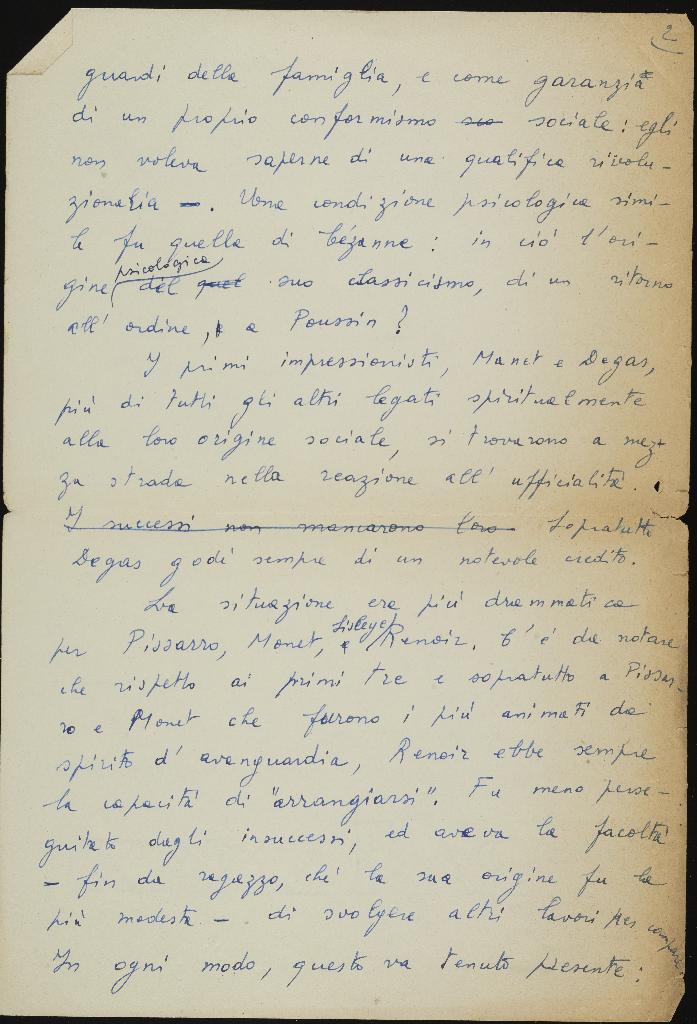 2
guardi della famiglia, e come garanzia
di un proprio conformismo suo sociale: egli
non voleva saperne di una qualifica rivolu-
zionaria –. Una condizione psicologica simi-
le fu quella di Cézanne: in ciò l'ori-
psicologica
gine del quel suo classicismo, di un ritorno
all'ordine, e a Poussin?
I primi impressionisti, Manet e Degas,
più di tutti gli altri legati spiritualmente
alla loro origine sociale, si trovarono a mez-
za strada nella reazione all'ufficialità.
I successi non mancarono loro Sopratutto
Degas godé sempre di un notevole credito.
La situazione era più drammatica
Sisley e
per Pissarro, Monet, e Renoir. C'è da notare
che rispetto ai primi tre e sopratutto a Pissar-
ro e Monet che furono i più animati da
spirito d'avanguardia, Renoir ebbe sempre
la capacità di "arrangiarsi". Fu meno perse-
guitato dagli insuccessi, ed aveva la facoltà
– fin da ragazzo, ché la sua origine fu la
più modesta – di svolgere altri lavori per campare.
In ogni modo, questo va tenuto presente: